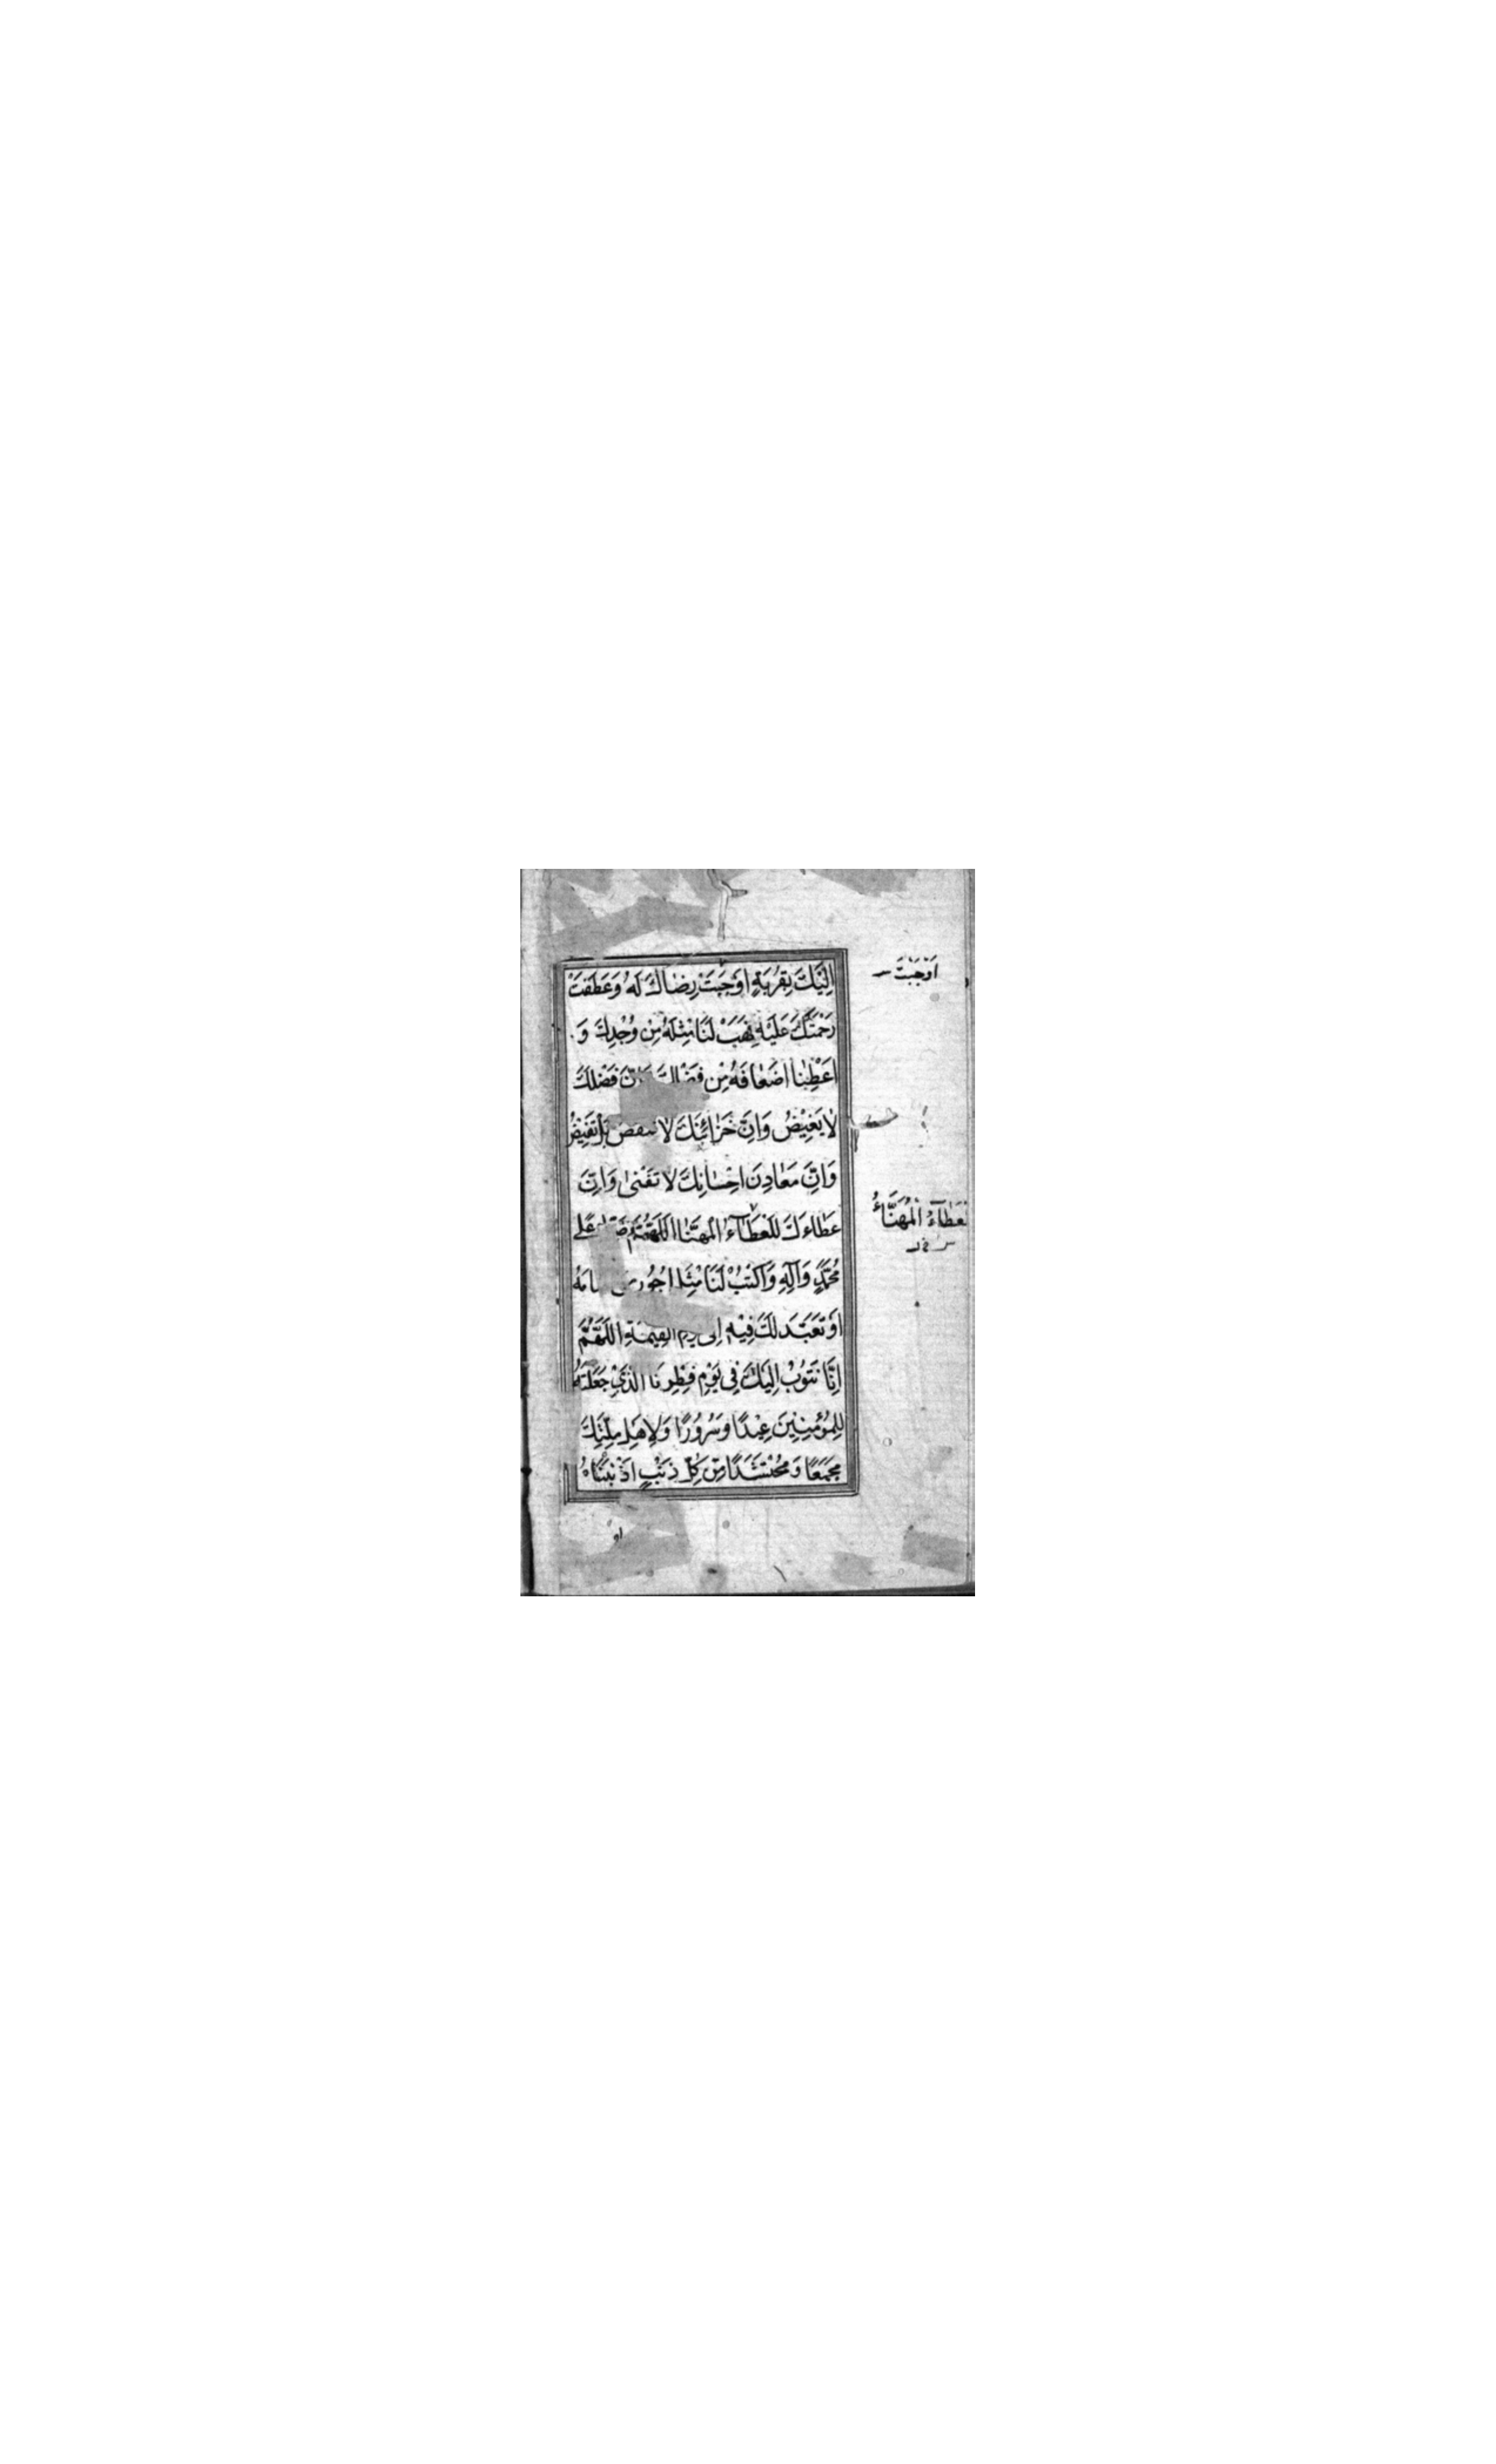 اِلَيْكَ بِقُرْبَةٍ اَوْجَبَتْ رِضَاكَ لَهُ وَعَطَفَتْ
رَحْمَتَكَ عَلَيْهِ فَهَبْ لَنَا مِثْلَهُ مِنْ وُجْدِكَ وَ
اَعْطِنَا اَضْعَافَهُ مِنْ فَضْلِكَ فَضْلَكَ
لَا يَغِيْضُ وَاِنَّ خَزَائِنَكَ لَا تنقص بَلْ تَفِيْضُ
وَاِنَّ مَعَادِنَ اِحْسَانِكَ لَا تَفْنىٰ وَاِنَّ
عَطَاءَكَ لَلْعَطَآءُ الْمُهَنَّا اَللّٰهُمَّ صَلِّ عَلىٰ
مُحَمَّدٍ وَآلِهِ وَاكْتُبْ لَنَا مِثْلَ اُجُورِ
اَوْ تَعَبَّدَ لَكَ فِيْهِ اِلىٰ يَوْمِ الْقِيٰمَةِ اَللّٰهُمَّ
اِنَّا نَتُوْبُ اِلَيْكَ فِي يَوْمِ فِطْرِنَا الَّذِيْ جَعَلْتَهُ
لِلْمُؤْمِنِيْنَ عِيْدًا وَسُرُوْرًا وَلِاَهْلِ مِلَّتِكَ
مَجْمَعًا وَمُحْتَشَدًا مِنْ كُلِّ ذَنْبٍ اَذْنَبْنَاهُ
اَوْجَبَتْ
لْعَطَآءُ الْمُهَنَّاءُ
او